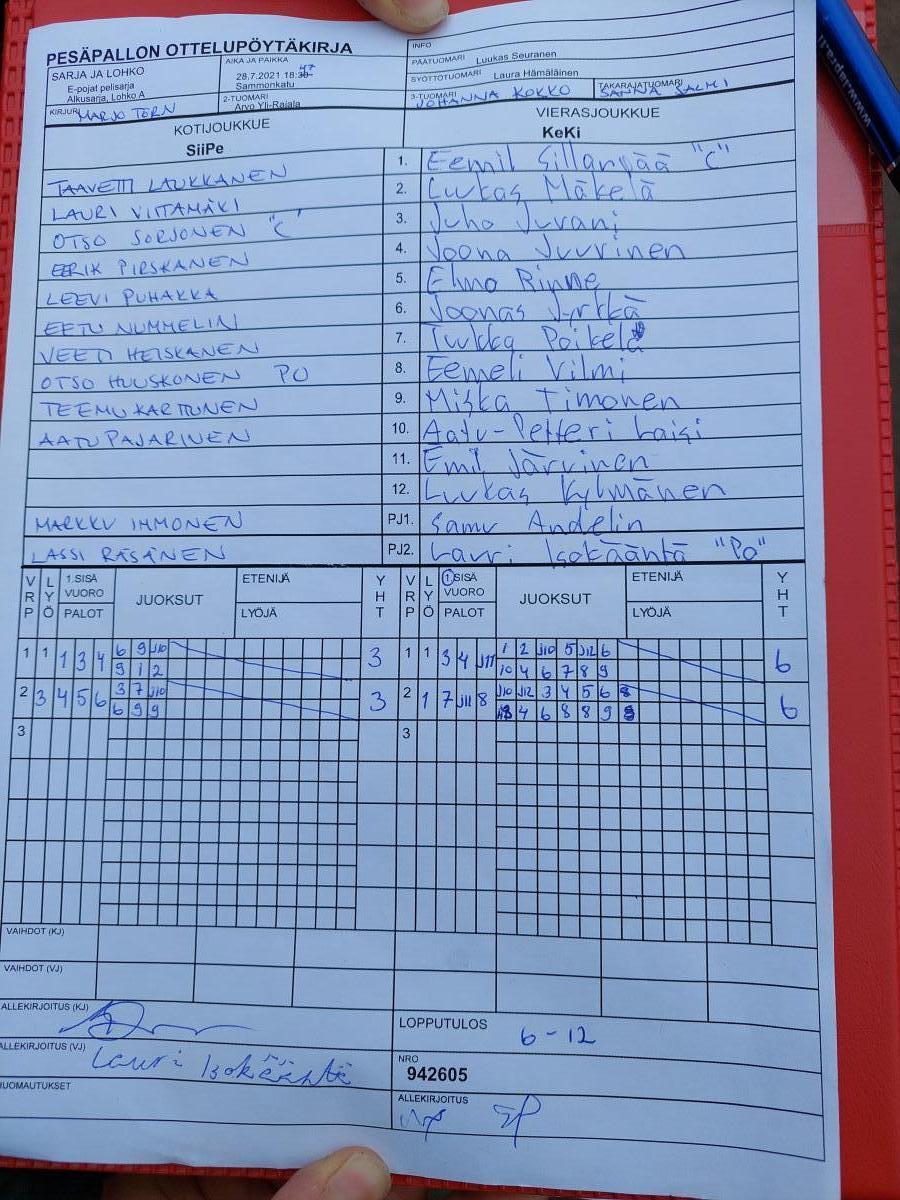 PESÄPALLON OTTELUPÖYTÄKIRJA
INFO
SARJA JA LOHKO
E-pojat pelisarja
Alkusarja, Lohko A
AIKA JA PAIKKA
28.7.2021 18:30 47
Sammonkatu
PÄÄTUOMARI Luukas Seuranen
SYÖTTÖTUOMARI Laura Hämäläinen
KIRJURI MARJO TORN
2-TUOMARI
Arvo Yli-Rajala
3-TUOMARI
JOHANNA KOKKO
TAKARAJATUOMARI
SANNA SALMI
KOTIJOUKKUE
SiiPe
VIERASJOUKKUE
KeKi
TAAVETTI LAUKKANEN 1. Eemil Sillanpää "C"
LAURI VIITAMÄKI 2. Lukas Mäkelä
OTSO SORJONEN "C" 3. Juho Juvani
EERIK PIRSKANEN 4. Joona Juurinen
LEEVI PUHAKKA 5. Elmo Rinne
EETU NUMMELIN 6. Joonas Jyrkkä
VEETI HEISKANEN 7. Tukka Poikela
OTSO HUUSKONEN PO 8. Eemeli Vilmi
TEEMU KARTTUNEN 9. Miska Timonen
AATU PAJARINEN 10. Aatu-Petteri Laisi
11. Emil Järvinen
12. Luukas Kylmänen
MARKKU IMMONEN PJ1. Samu Andelin
LASSI RÄSÄNEN PJ2. Lauri Isokääntä "PO"
VRP LYÖ 1.SISÄ VUORO PALOT JUOKSUT ETENIJÄ LYÖJÄ YHT VRP LYÖ 1.SISÄ VUORO PALOT JUOKSUT ETENIJÄ LYÖJÄ YHT
1 1 1 3 4 6 9 J10 3 1 1 3 4 J11 1 2 J10 5 J12 6 6
9 1 2 10 4 6 7 8 9
2 3 4 5 6 3 7 J10 3 2 1 7 J11 8 J10 J12 3 4 5 6 6
6 9 9 4 6 8 8 9
3 3
VAIHDOT (KJ)
VAIHDOT (VJ)
ALLEKIRJOITUS (KJ)
LOPPUTULOS 6-12
ALLEKIRJOITUS (VJ) Lauri Isokääntä
NRO
942605
HUOMAUTUKSET
ALLEKIRJOITUS